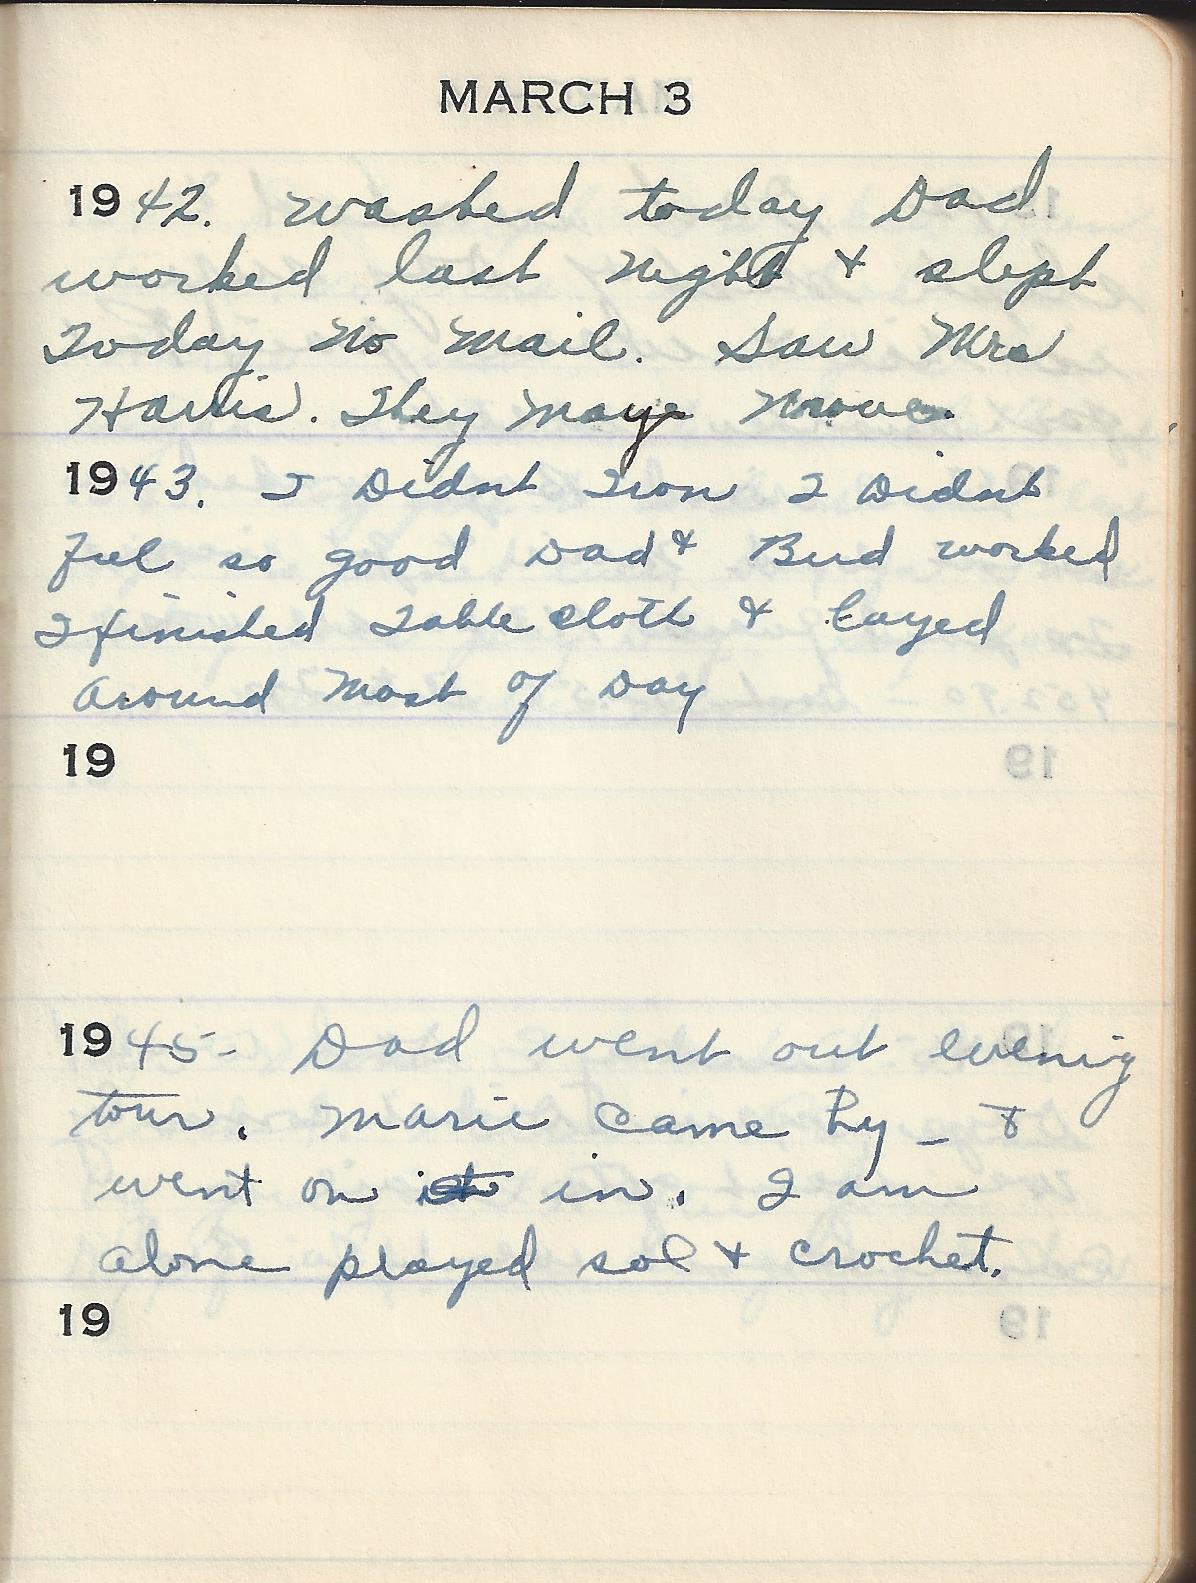 MARCH 3
1942. Washed today Dad
worked last night & slept
Today No Mail. Saw Mrs
Harris. They maye move
1943. I Didnt Iron I Didnt
feel so good Dad & Bud worked
I finished Table cloth & layed
Around Most of Day
19
1945- Dad went out evening
tour. Marie came by - &
went on in. I am
alone played sol & crochet.
19